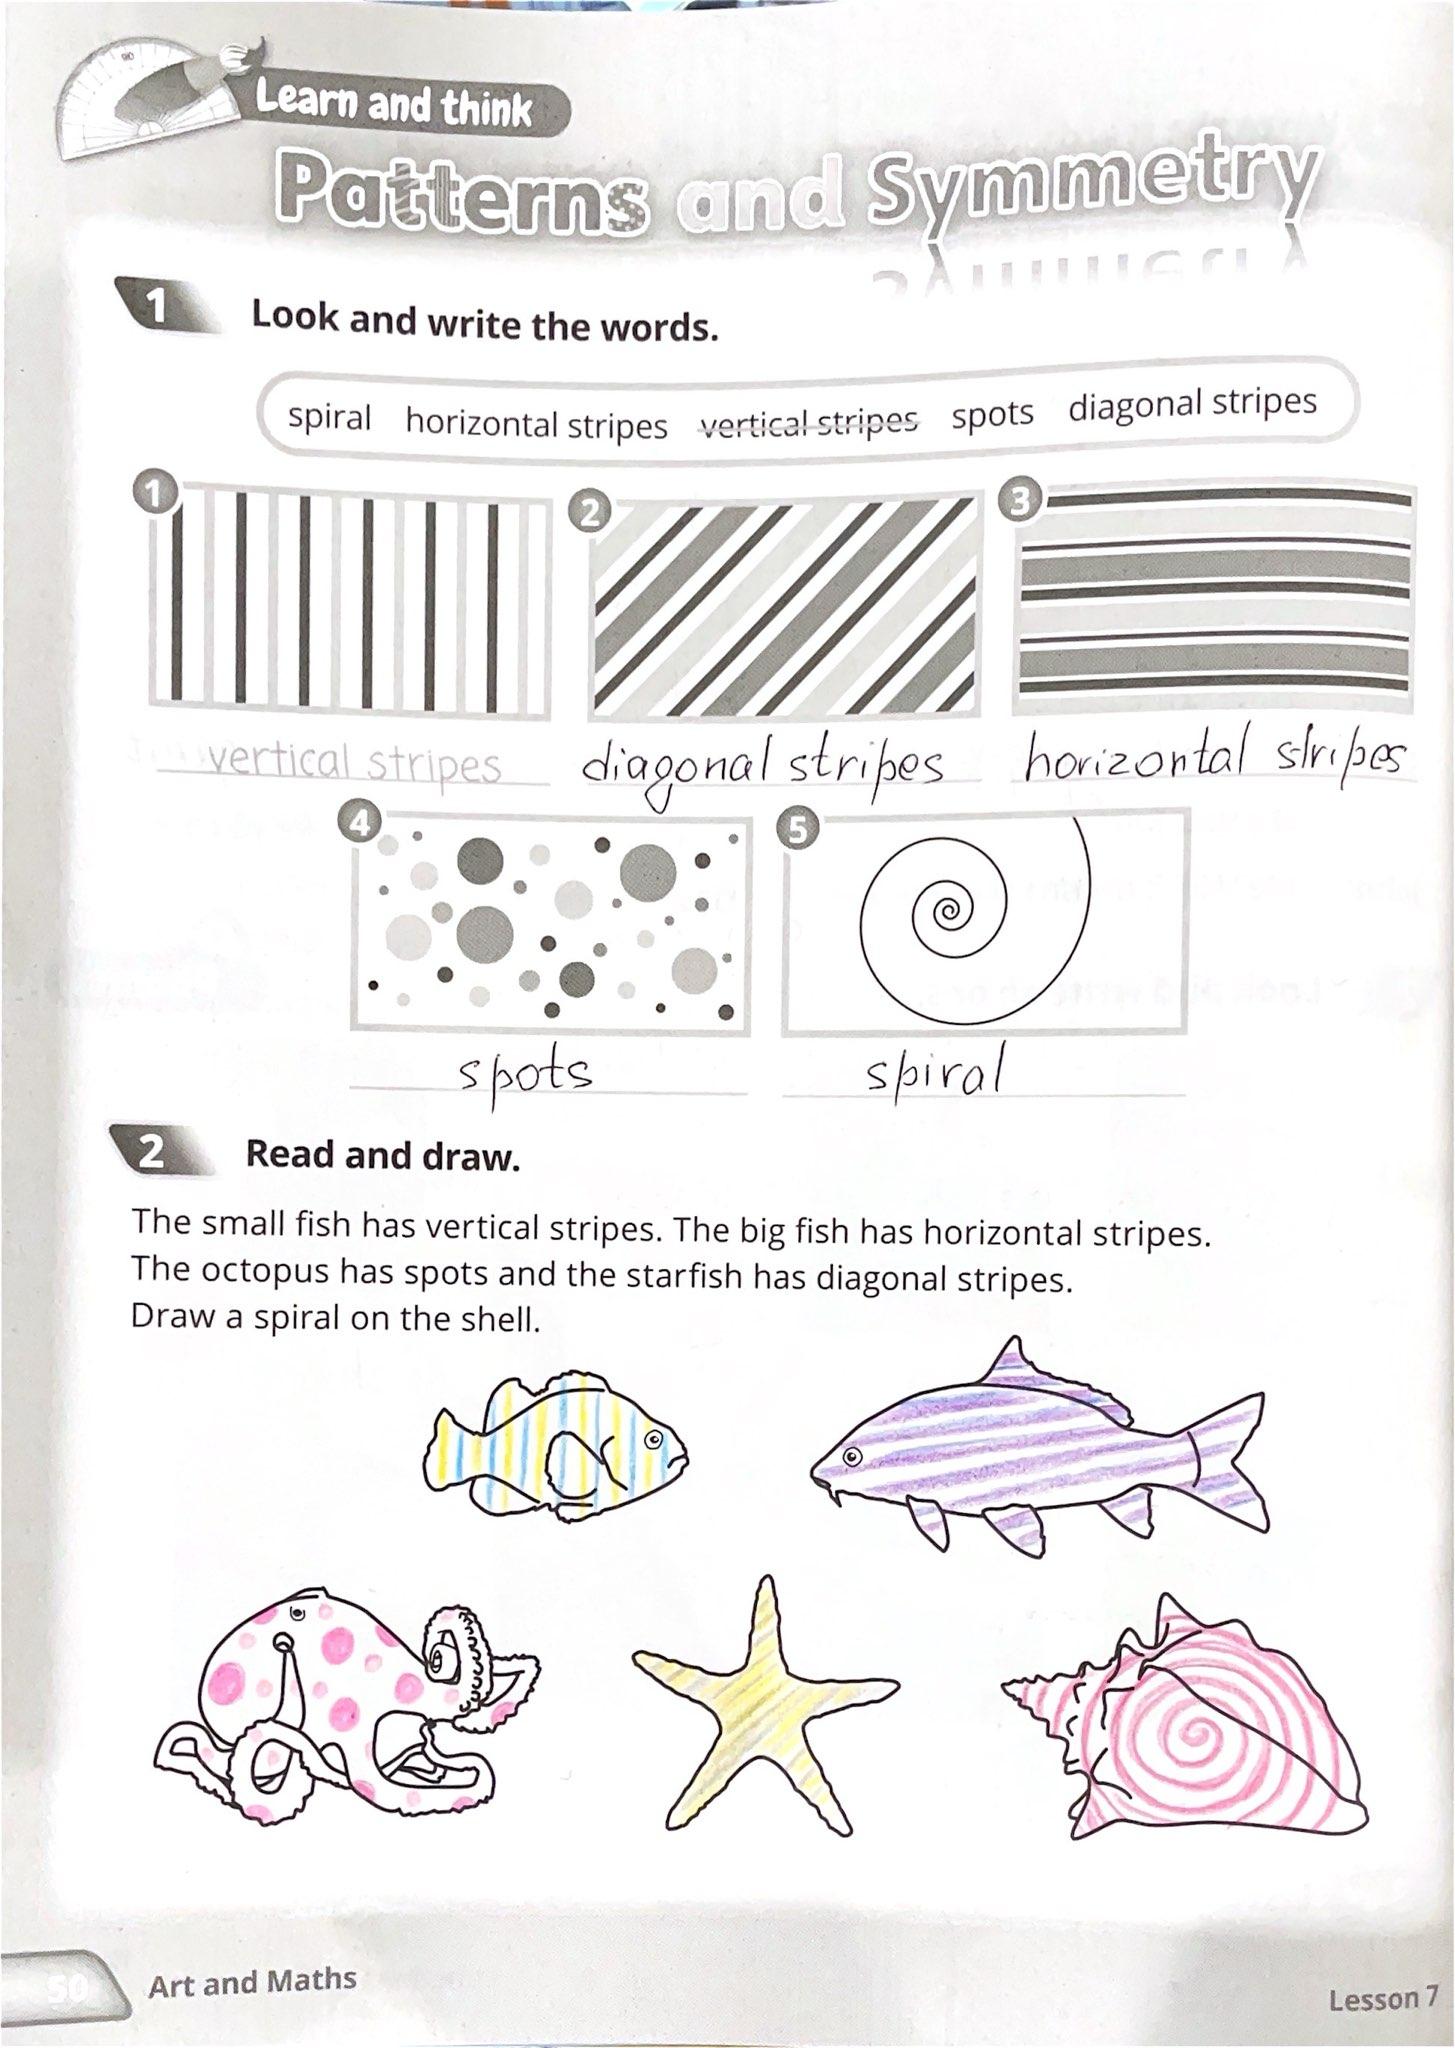 Learn and think
Patterns and Symmetry
1 Look and write the words.
spiral horizontal stripes vertical stripes spots diagonal stripes
1 2 3
vertical stripes diagonal stripes horizontal stripes
4 5
spots spiral
2 Read and draw.
The small fish has vertical stripes. The big fish has horizontal stripes.
The octopus has spots and the starfish has diagonal stripes.
Draw a spiral on the shell.
50 Art and Maths Lesson 7